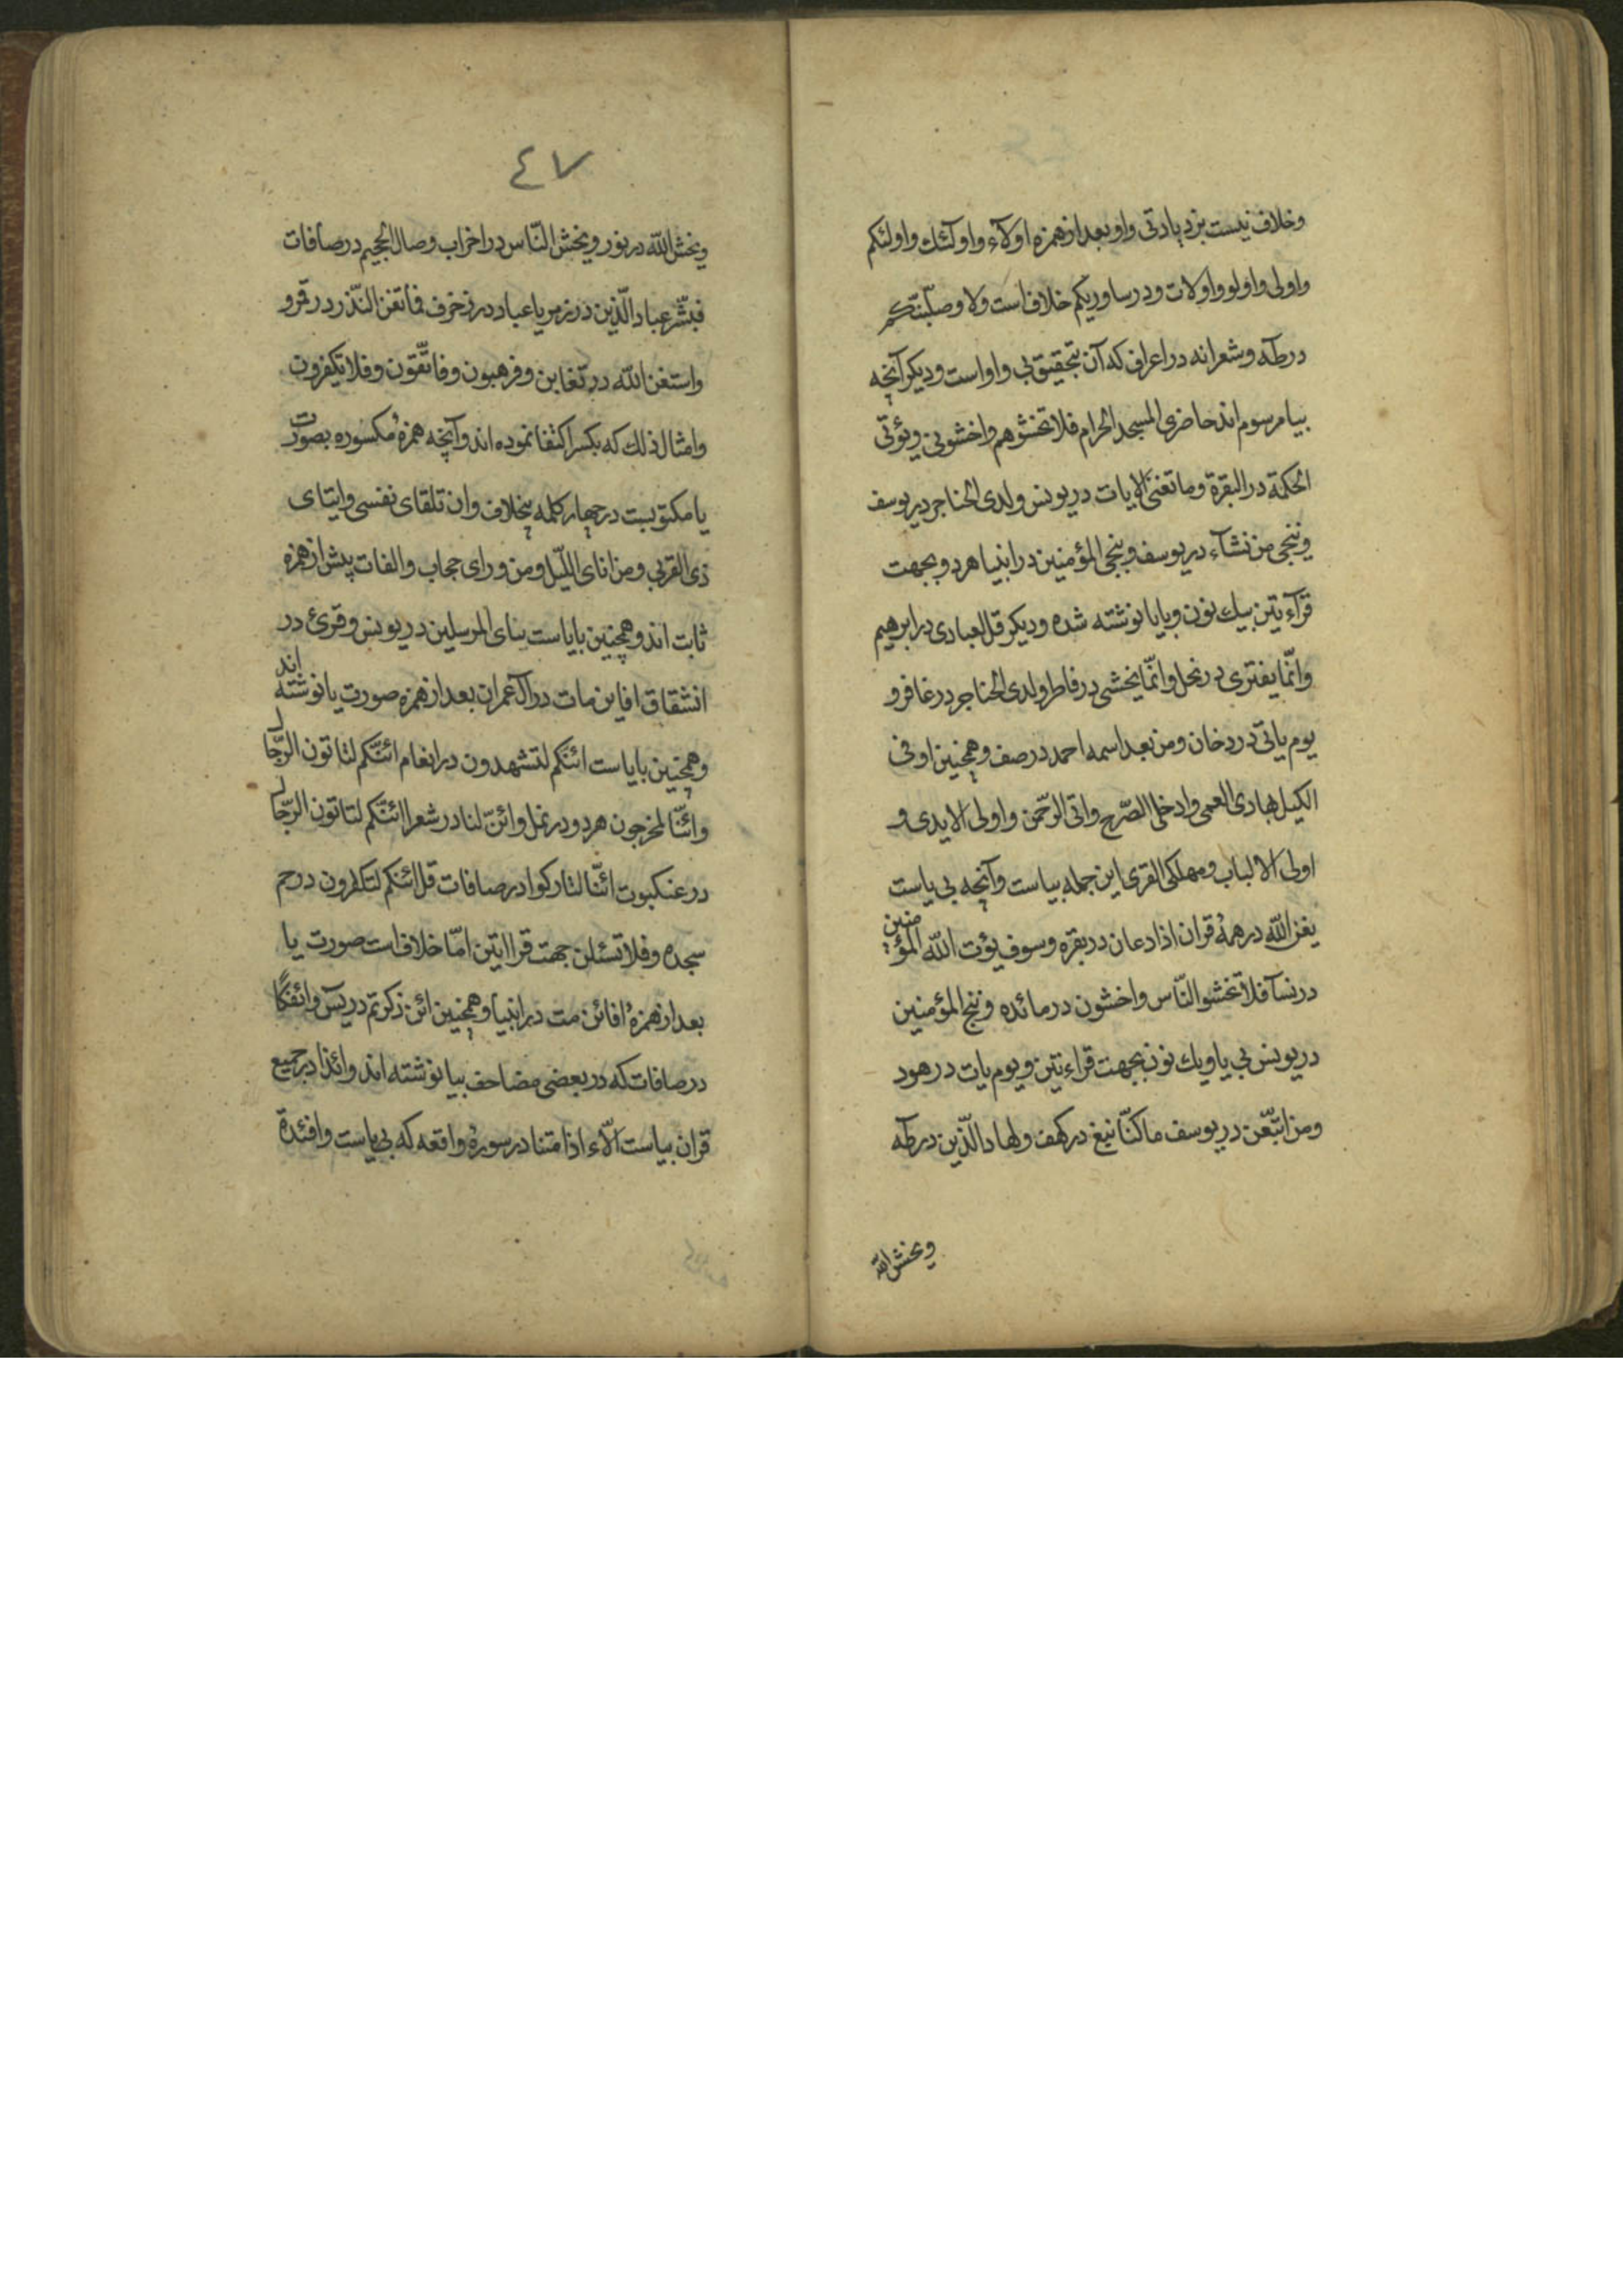 وخلاف نیست بزد یادتی واو بعد از همزه اولآء واولئك واولئكم
واولی واولو واولات ودر ساوریكم خلافست ولا وصلبنكم
در طه وشعرا نه در اعراف كه آن بتحقیق بی واو است ودیكر آنچه
بیا مرسوم اند حاضری المسجد الحرام فلا تخشوهم واخشونی ویؤتی
الحكمة در البقرة وما تغنی الایات در یونس ولدی الحناجر در یوسف
وننجی من نشآء در یوسف وننجی المؤمنین در انبیا هر دو بجهت
قرآءیتن بیك نون وبایا نوشته شده ودیكر قل لعبادی در ابرهیم
وانّما یفتری در نحل وانّما یخشی در فاطر ولدی الحناجر در غافر و
یوم یاتی در دخان ومن بعد اسمه احمد در صف وهمچنین اوفی
الكیل بهادی العمی وادخلی الصّرح واتی الرّحمن واولی الایدی و
اولی الالباب ومهلكی القری این جمله بیاست وآنچه بی یاست
یغن اللّه در همهٔ قران اذا دعان در بقره وسوف یؤت اللّه المؤمنین
در نسآ فلا تخشوا النّاس واخشون در مائده وننج المؤمنین
در یونس بی یا ویك نون بجهت قراءتین ویوم یات در هود
ومن اتّبعن در یوسف ما كنّا نبغ در كهف ولهاد الّذین در طه
ویخش اللّه
٤٧
ویخش اللّه در نور ویخش النّاس در احزاب وصال الجحیم در صافات
فبشّر عباد الّذین در زمر یا عباد در زخرف فما تغن النّذر در قمر و
واستغن اللّه در تغابن وفرهبون وفاتّقون وفلا تكفرون
وامثال ذلك كه بكسر اكتفا نموده اند وآنچه همزهٔ مكسوره بصورت
یا مكتوبست در چهار كلمه بخلاف وان تلقای نفسی وایتای
ذی القربی ومن انای اللّیل ومن ورای حجاب والفات پیش از همزه
ثابت اند وهمچنین بایاست بنای المرسلین در یونس وقرئ در
انشقاق افاین مات در آل عمران بعد از همزه صورت یا نوشته اند
وهمچنین بایاست ائنّكم لتشهدون در انعام ائنّكم لتاتون الرّجال
وائنّا لمخرجون هر دو در نمل وائنّ لنا در شعرا ائنّكم لتاتون الرّجال
در عنكبوت ائنّا لتاركوا در صافات قل ائنكم لتكفرون در حم
سجده وفلا تسئلن جهت قرااتین امّا خلافست صورت یا
بعد از همزهٔ افائن مت در انبیا وهمچنین ائن ذكرتم در یس وائفكًا
در صافات كه در بعضی مصاحف بیا نوشته اند وائذا در جمیع
قران بیاست الّاء اذا متنا در سورهٔ واقعه كه بی یاست وافئدة